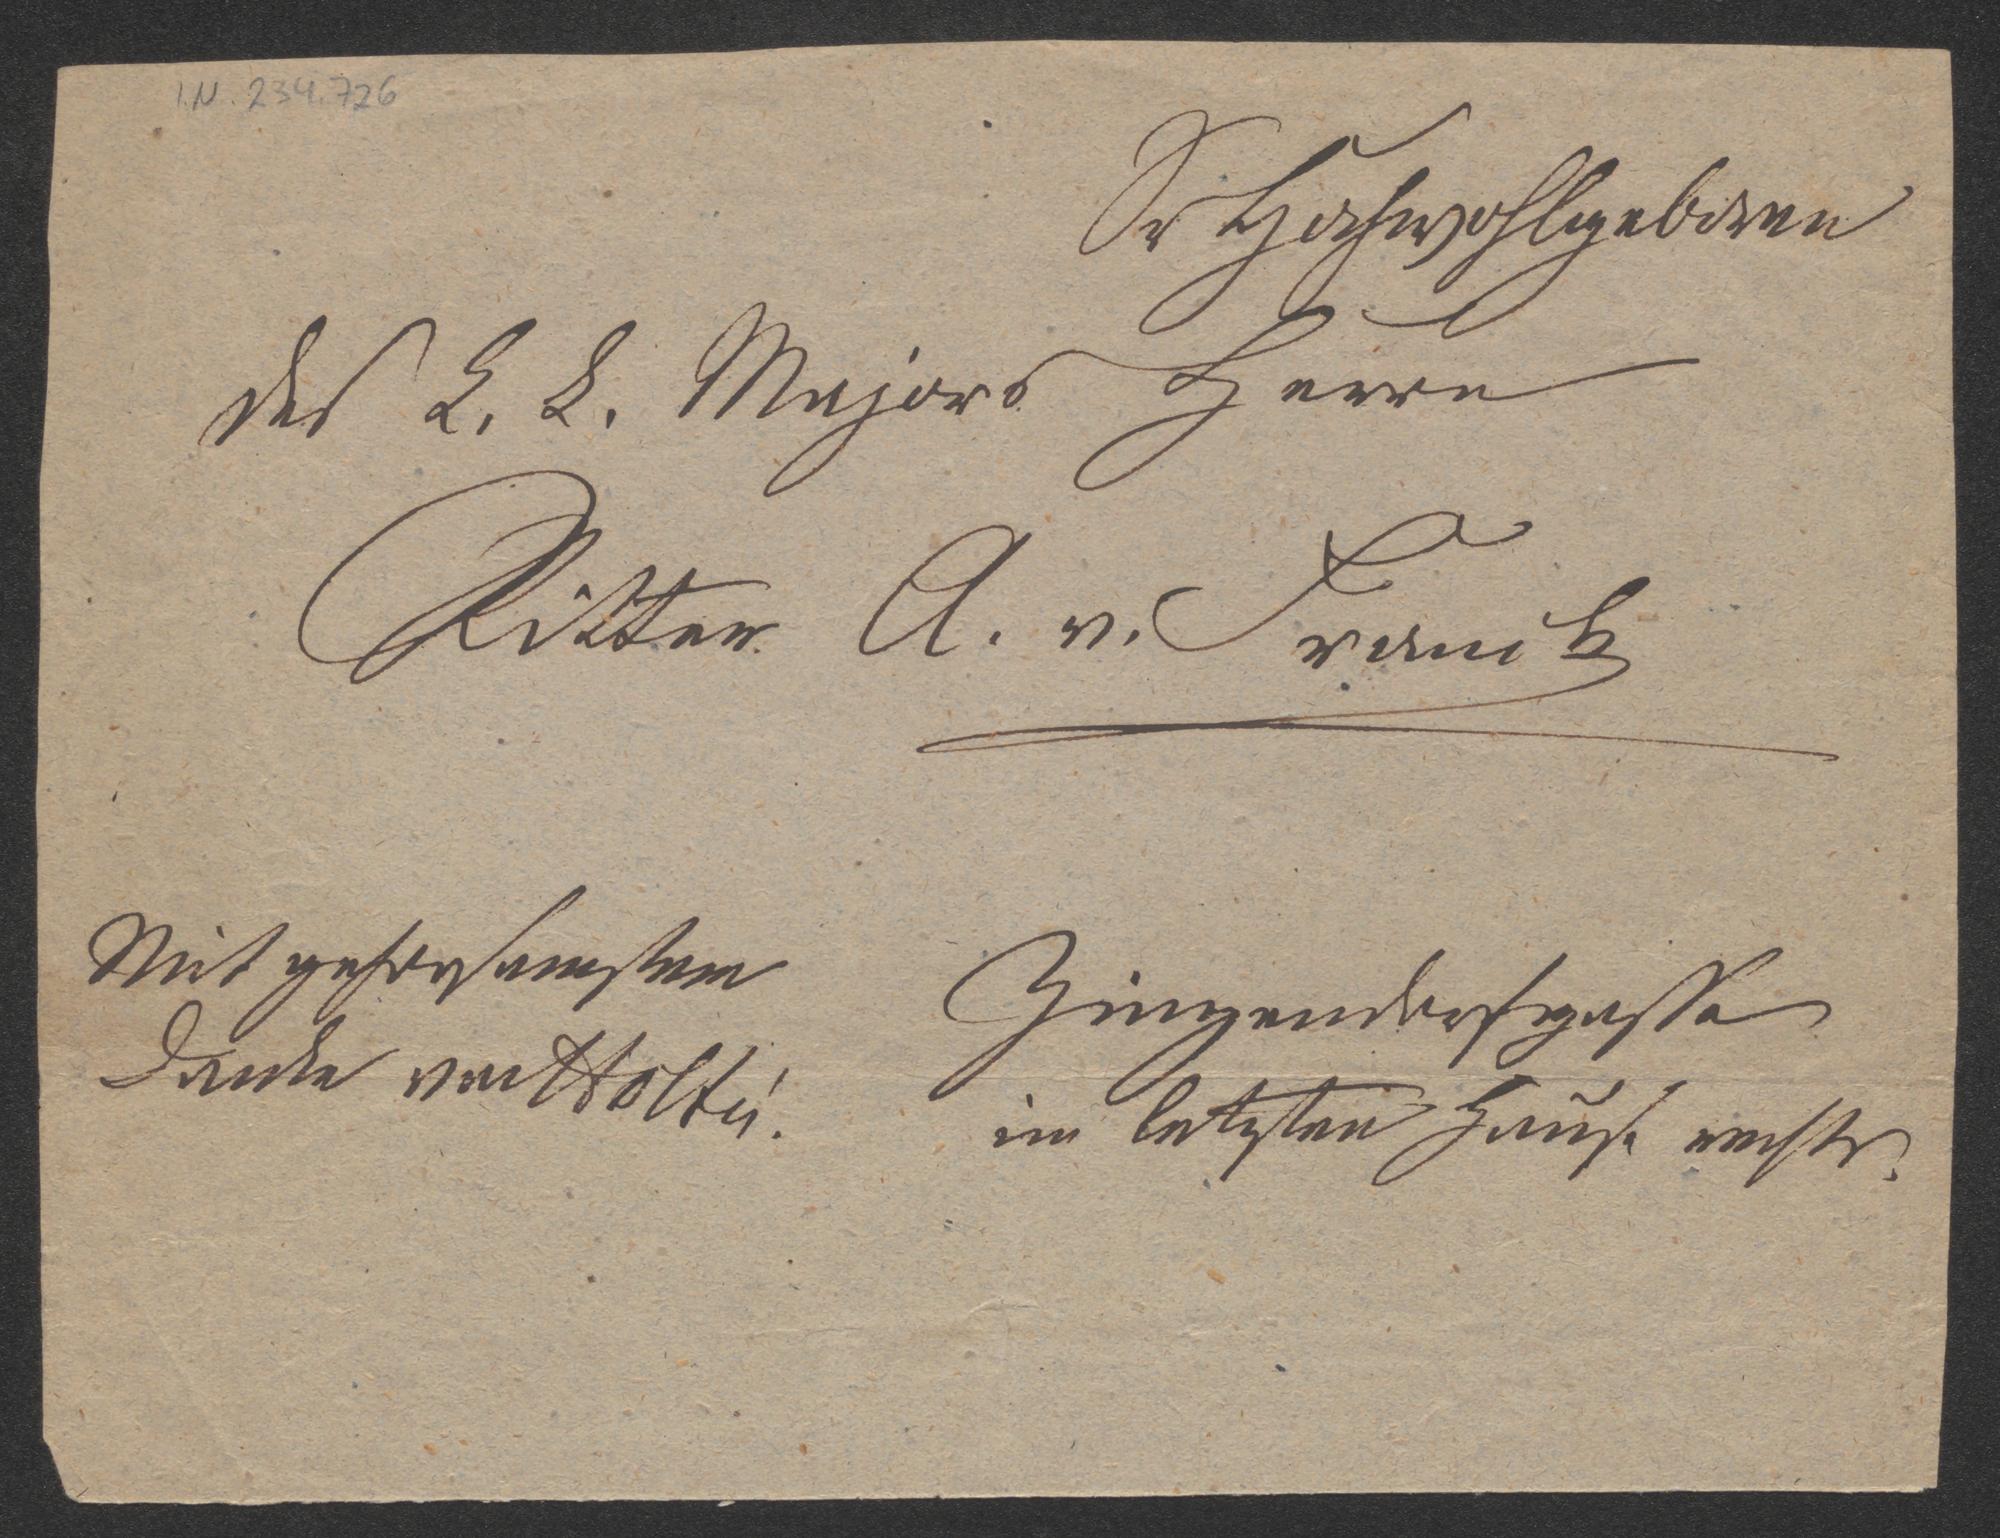 I.N. 234.726
Sr Hochwohlgeboren
des k. k. Majors Herrn
Ritter A. v. Franck
Mit gehorsamstem
Danke von Holtei.
Zinzendorfgasse
im letzten Hause rechts.